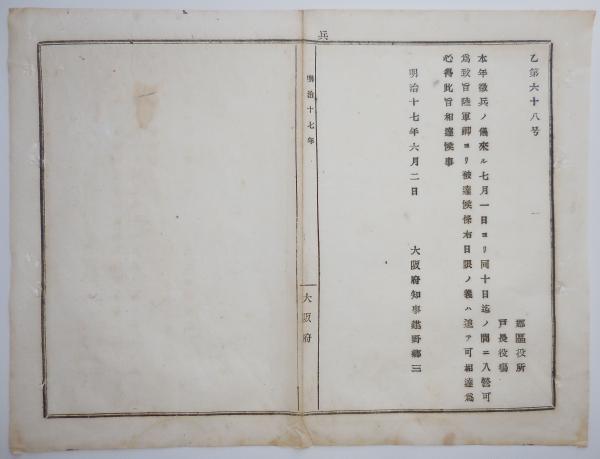 乙第六十八号
郡區役所
戸長役場
本年徴兵ノ儀來ル七月一日ヨリ同十日迄ノ間ニ入營可
為致旨陸軍卿ヨリ被達候條右日限ノ義ハ追テ可相達為
心得此旨相達候事
明治十七年六月二日
大阪府知事建野郷三
兵
明治十七年
大阪府